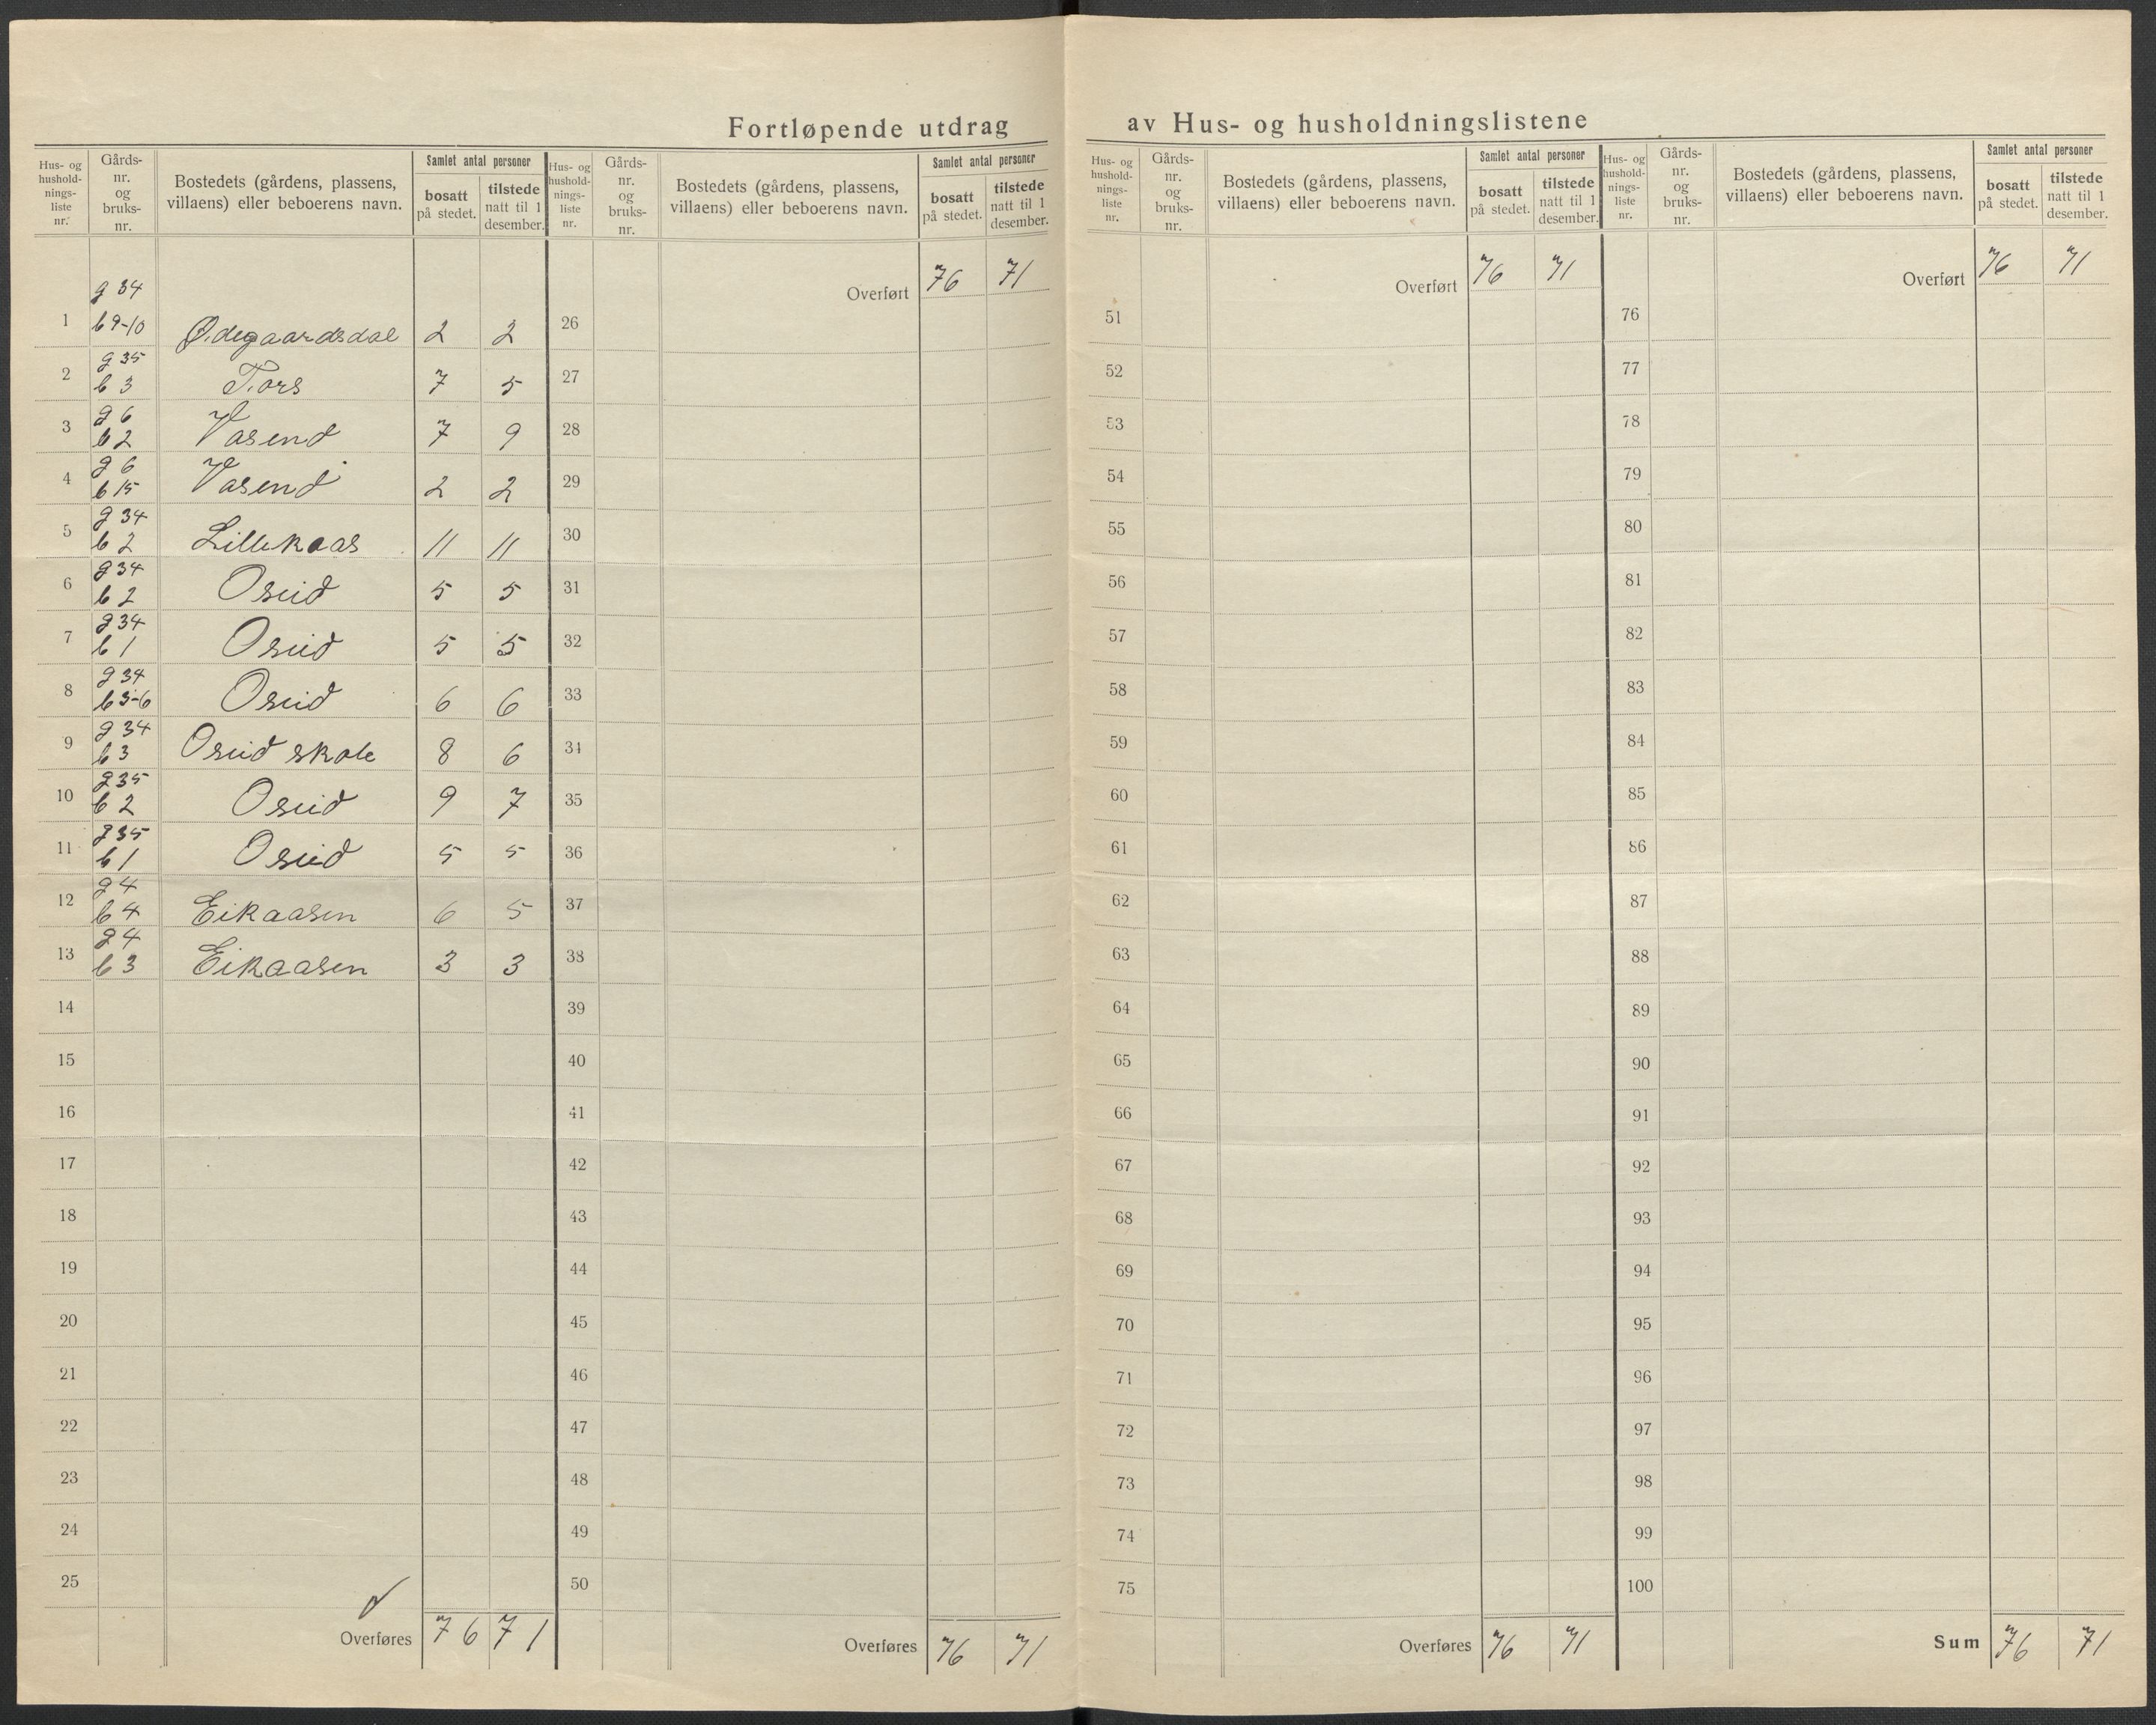 Fortløpende utdrag av Hus- og husholdningslistene
Hus- og hushold-nings-liste nr. Gårds-nr. og bruks-nr. Bostedets (gårdens, plassens, villaens) eller beboerens navn. Samlet antal personer bosatt på stedet. tilstede natt til 1 desember.
g 34
1 b 9-10 Ødegaardsdal 2 2
g 35
2 b 3 Fors 7 5
g 6
3 b 2 Vasend 7 9
g 6
4 b 15 Vasend 2 2
g 34
5 b 2 Lillekaas 11 11
g 34
6 b 2 Oseid 5 5
g 34
7 b 1 Oseid 5 5
g 34
8 b 3-6 Oseid 6 6
g 34
9 b 3 Oseid skole 8 6
g 35
10 b 2 Oseid 9 7
g 35
11 b 1 Oseid 5 5
g 4
12 b 4 Eikaasen 6 5
g 4
13 b 3 Eikaasen 3 3
14
15
16
17
18
19
20
21
22
23
24
25
Overføres 76 71
Hus- og hushold-nings-liste nr. Gårds-nr. og bruks-nr. Bostedets (gårdens, plassens, villaens) eller beboerens navn. Samlet antal personer bosatt på stedet. tilstede natt til 1 desember.
Overført 76 71
26
27
28
29
30
31
32
33
34
35
36
37
38
39
40
41
42
43
44
45
46
47
48
49
50
Overføres 76 71
Hus- og hushold-nings-liste nr. Gårds-nr. og bruks-nr. Bostedets (gårdens, plassens, villaens) eller beboerens navn. Samlet antal personer bosatt på stedet. tilstede natt til 1 desember.
Overført 76 71
51
52
53
54
55
56
57
58
59
60
61
62
63
64
65
66
67
68
69
70
71
72
73
74
75
Overføres 76 71
Hus- og hushold-nings-liste nr. Gårds-nr. og bruks-nr. Bostedets (gårdens, plassens, villaens) eller beboerens navn. Samlet antal personer bosatt på stedet. tilstede natt til 1 desember.
Overført 76 71
76
77
78
79
80
81
82
83
84
85
86
87
88
89
90
91
92
93
94
95
96
97
98
99
100
Sum 76 71